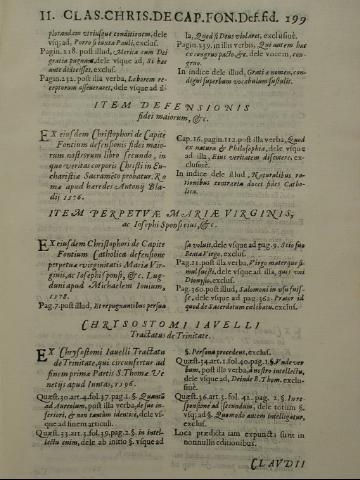 II. CLAS. CHRIS. DE CAP. FON. Def. fid. 199
plorandam vtriusque conditionem, dele
vsq; ad, Porro sententia Pauli, exclus.
Pagin. 218. post illud, America cum Dei
gratia pugnam, dele vsque ad, Si hac
ante dedisses, exclus.
Pagin. 232. post illa verba, Laborem re-
ceptorum asseuerares, dele vsque ad il-
la, Quod si Deus voluisset, exclusiuè.
Pagin. 239. in illis verbis, Qui autem hac
ex congruo pacto, &c. dele vocem, con-
gruo.
In indice dele illud, Grati a nomen, con-
digni superbum vocabulum sustulit.
ITEM DEFENSIONIS
fidei maiorum, &c.
EX eiusdem Christophori de Capite
Fontium defensionis fidei maio-
rum nostrorum libro secundo, in
quo veritas corporis Christi in Eu-
charistiæ Sacramento probatur. Ro-
mæ apud hæredes Antonij Bla-
dij 1576.
Cap. 16. pagin. 112. post illa verba, Quod
ex natura & Philosophia, dele vsque
ad illa, Eius veritatem asserere, ex-
clusiuè.
In indice dele illud, Naturalibus ra-
tionibus contraria docet fides Catho-
lica.
ITEM PERPETVÆ MARIÆ VIRGINIS,
ac Iosephi Sponsi eius, &c.
EX eiusdem Christophori de Capite
Fontium Catholica defensione
perpetuæ virginitatis Mariæ Vir-
ginis, ac Iosephi sponsi, &c. Lug-
duni apud Michaelem Iouium,
1578.
Pag. 7. post illud, Et repugnantibus persua
sa voluit, dele vsque ad pag. 9. Scio suo
Beata Virgo, exclus.
Pag. 21. post illa verba, Virgo materque si-
mul fuisse, dele vsque ad illa, quis mei
Dionysio, exclus.
Pag. 360. post illud, Salomoni in vsu fuis-
se, dele vsque ad pag. 362. Præter id
quod de Sacerdotum cælibatu, exclus.
CHRYSOSTOMI IAVELLI
Tractatus de Trinitate.
EX Chrysostomi Iauelli Tractatu
de Trinitate, qui circunfertur ad
finem primæ Partis S. Thomæ Ve-
netijs apud Iuntas, 1596.
Quæst. 30. art. 4. fol. 37. pag. 2. §. Quantū
ad Aureolum, post illa verba, de suo in-
ferieri, & non tantùm identicè, dele vs-
que ad finem articuli.
Quæst. 33. art. 3. fol. 39. pag. 2. §. in intel-
lectu enim, dele ab initio §. vsque ad
§. Persona procedens, exclus.
Quæst. 34. art. 1. fol. 40. pag. 1. §. Vnde ver-
bum, post illa verba, à nostro intellectu,
dele vsque ad, Deinde B. Thom. exclu-
siuè.
Quæst. 36. art. 3. fol. 42. pag. 2. §. In re-
sponsione ad secundum, dele totum §.
vsq; ad §. Quomodo autem intelligatur,
exclus.
Loca prædicta iam expuncta sunt in
nonnullis editionibus.
CLAVDII